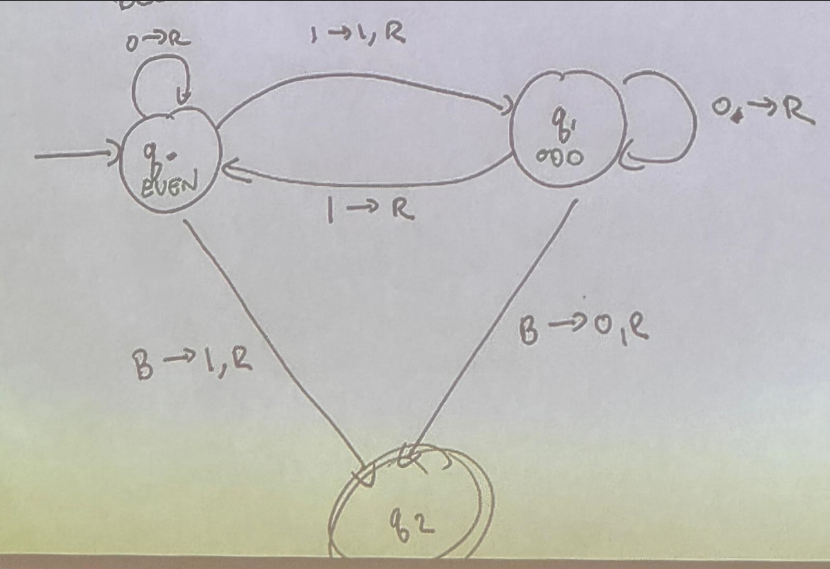 0→R
1→1,R
q0
EVEN
q1
ODD
0→R
1→R
B→1,R
B→0,R
q2